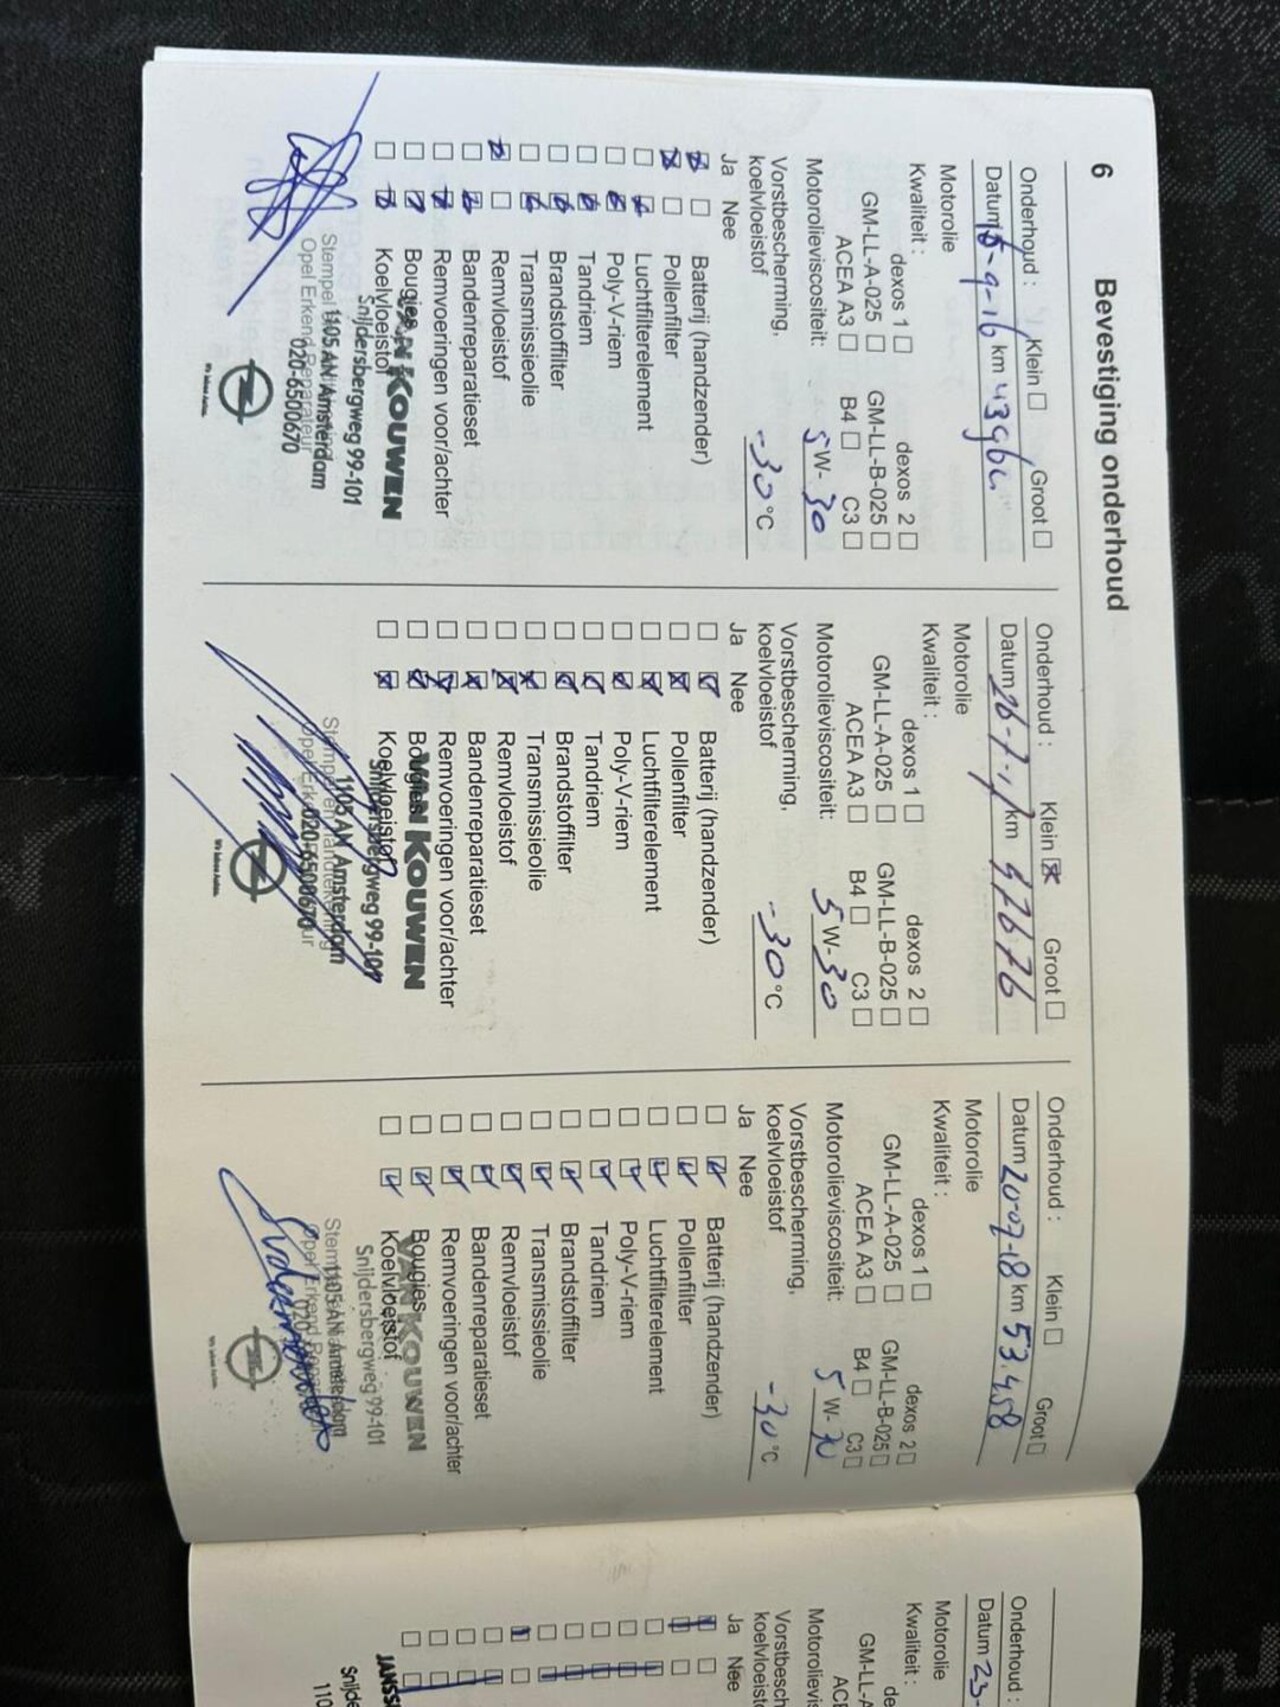 6 Bevestiging onderhoud
Onderhoud : Klein Groot
Datum 15-9-16 km
Motorolie
Kwaliteit : dexos 1 dexos 2
GM-LL-A-025 GM-LL-B-025
ACEA A3 B4 C3
Motorolieviscositeit: 5 W- 30
Vorstbescherming,
koelvloeistof -30 °C
Ja Nee
Batterij (handzender)
Pollenfilter
Luchtfilterelement
Poly-V-riem
Tandriem
Brandstoffilter
Transmissieolie
Remvloeistof
Bandenreparatieset
Remvoeringen voor/achter
Bougies
Koelvloeistof
VAN KOUWEN
Snijdersbergweg 99-101
1105 AN Amsterdam
020-6500670
Stempel
Opel Erkend Reparateur
Onderhoud : Klein Groot
Datum 26-7-17 km
Motorolie
Kwaliteit : dexos 1 dexos 2
GM-LL-A-025 GM-LL-B-025
ACEA A3 B4 C3
Motorolieviscositeit: 5 W- 30
Vorstbescherming,
koelvloeistof -30 °C
Ja Nee
Batterij (handzender)
Pollenfilter
Luchtfilterelement
Poly-V-riem
Tandriem
Brandstoffilter
Transmissieolie
Remvloeistof
Bandenreparatieset
Remvoeringen voor/achter
Bougies
Koelvloeistof
VAN KOUWEN
Snijdersbergweg 99-101
1105 AN Amsterdam
020-6500670
Onderhoud : Klein Groot
Datum 20-07-18 km 53.458
Motorolie
Kwaliteit : dexos 1 dexos 2
GM-LL-A-025 GM-LL-B-025
ACEA A3 B4 C3
Motorolieviscositeit: 5 W- 30
Vorstbescherming,
koelvloeistof -30 °C
Ja Nee
Batterij (handzender)
Pollenfilter
Luchtfilterelement
Poly-V-riem
Tandriem
Brandstoffilter
Transmissieolie
Remvloeistof
Bandenreparatieset
Remvoeringen voor/achter
Bougies
Koelvloeistof
VAN KOUWEN
Snijdersbergweg 99-101
1105 AN Amsterdam
Onderhoud :
Datum 23-
Motorolie
Kwaliteit : de
GM-LL-A
ACE
Motorolievis
Vorstbesch
koelvloeist
Ja Nee
JANSS
Snijde
110